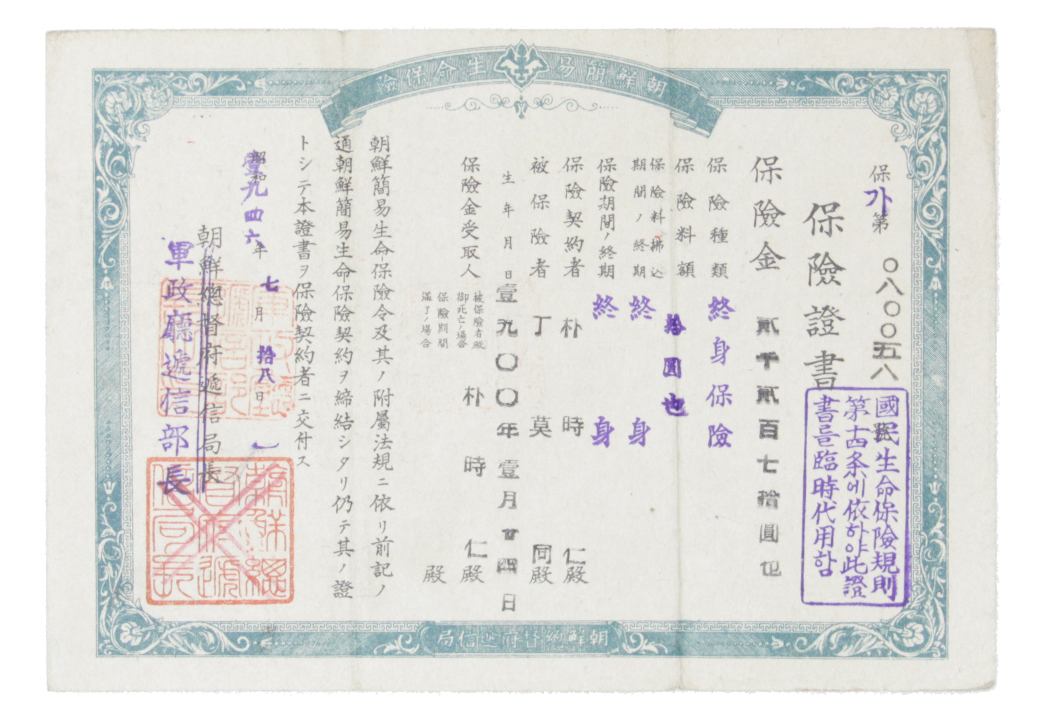 朝鮮簡易生命保險
保가第 〇八〇〇五八
保險證書
國民生命保險規則
第十四条에依하야此證
書를臨時代用함
保險金 貳千貳百七拾圓也
保險種類 終身保險
保險料額 拾圓也
保險料拂込
期間ノ終期 終身
保險期間ノ終期 終身
保險契約者 朴時仁殿
被保險者 丁莫同殿
生年月日 壹九〇〇年壹月廿四日
保險金受取人
被保險者死
亡ノ場合 朴時仁殿
保險期間
滿了ノ場合 殿
朝鮮簡易生命保險令及其ノ附屬法規ニ依リ前記ノ
通朝鮮簡易生命保險契約ヲ締結シタリ仍テ其ノ證
トシテ本證書ヲ保險契約者ニ交付ス
昭和
壹九四六年七月拾八日
朝鮮總督府遞信局長
軍政廳遞信部長
朝鮮總
督府遞
信局長
朝鮮總督府遞信局